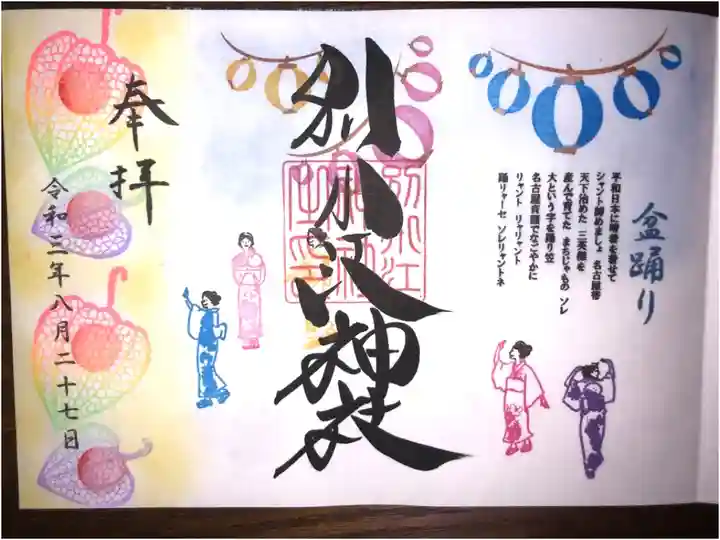 盆踊り
平和日本に晴着を着せて
シャント締めましょ 名古屋帯
天下治めた 三英傑を
産んで育てた まちじゃもの ソレ
大という字を踊り笠
名古屋音頭でなごやかに
リャント リャリャント
踊リャーセ ソレリャントネ
別小江神社
奉拝
令和三年八月二十七日